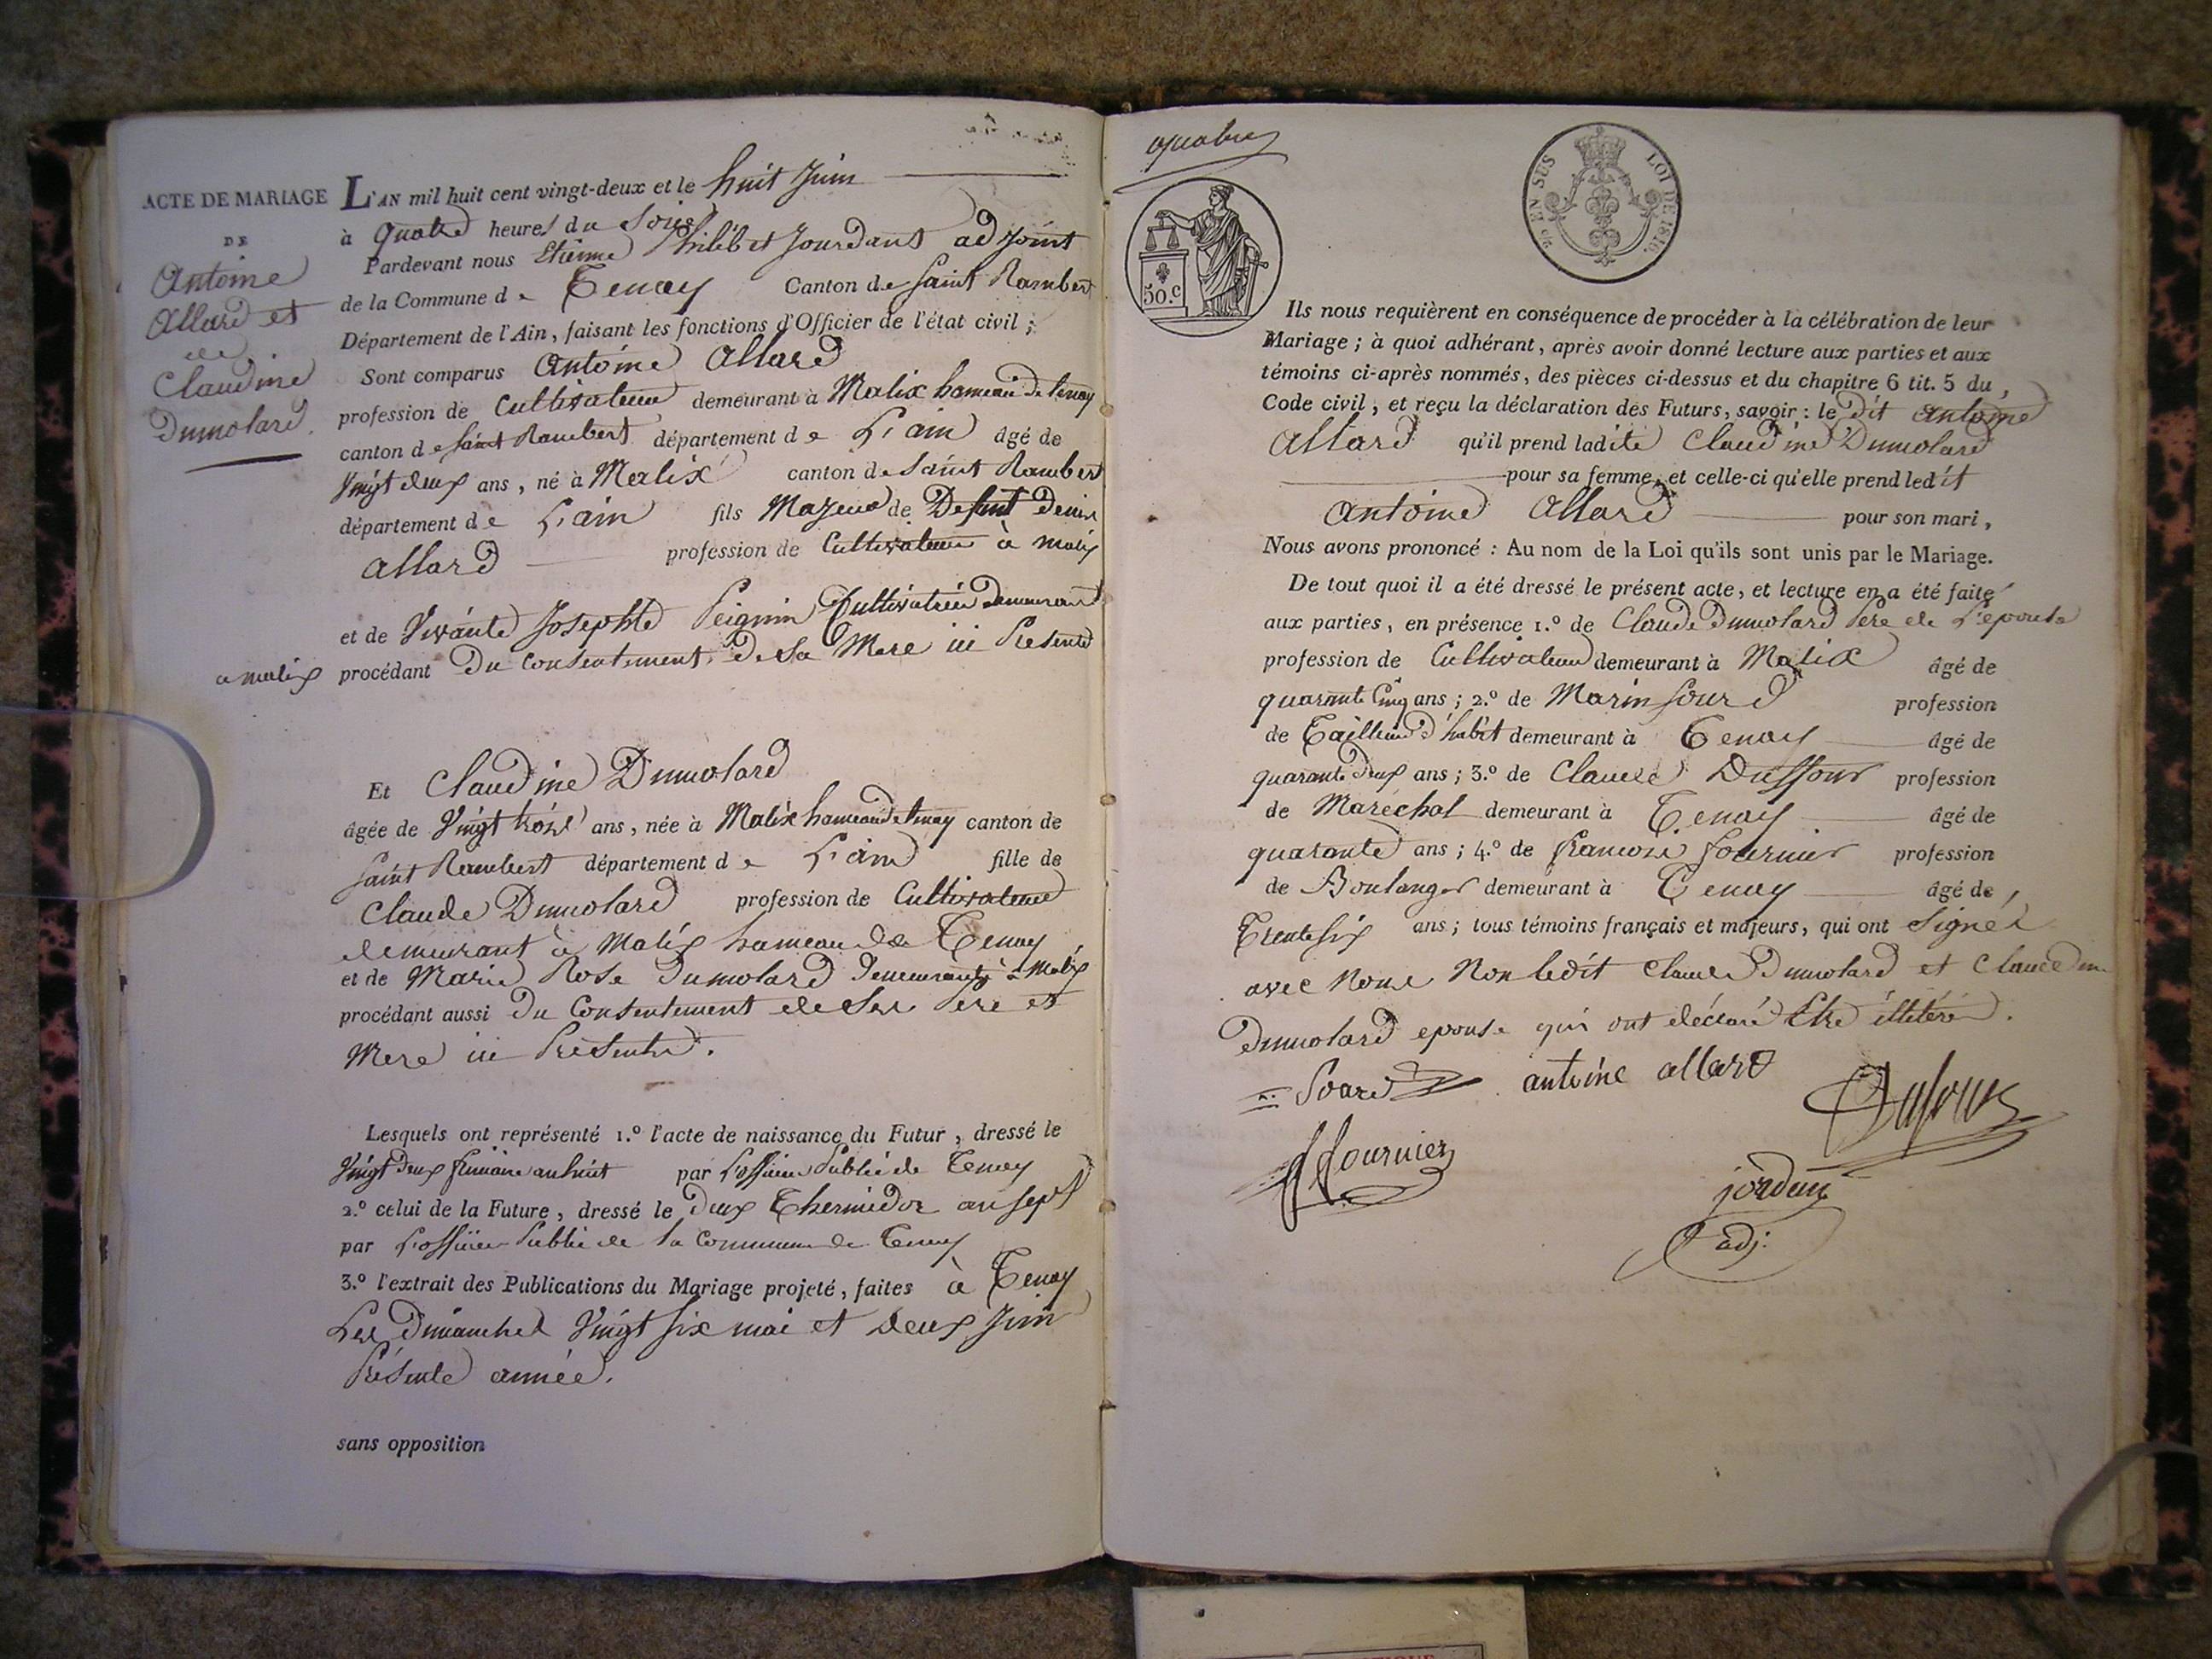 ACTE DE MARIAGE
DE
Antoine
Allard et
de
Claudine
Dumolard.
L'AN mil huit cent vingt-deux et le huit Juin
à quatre heures du Soir
Pardevant nous Etienne Philibert Jourdant adjoint
de la Commune de Tenay Canton de Saint Rambert
Département de l'Ain, faisant les fonctions d'Officier de l'état civil ;
Sont comparus Antoine Allard
profession de Cultivateur demeurant à Malix hameau de Tenay
canton de Saint Rambert département de L'ain âgé de
Vingt deux ans, né à Malix canton de Saint Rambert
département de L'ain fils Majeur de Defunt Denis
Allard profession de Cultivateur à Malix
et de Vivante Josephte Peignin Cultivatrice Demeurant
a malix procédant Du Consentement De Sa Mere ici Présente
Et Claudine Dumolard
âgée de Vingt trois ans, née à Malix hameau de Tenay canton de
Saint Rambert département de L'ain fille de
Claude Dumolard profession de Cultivateur
demeurant à Malix hameau de Tenay
et de Marie Rose Dumolard Demeurant à Malix
procédant aussi Du Consentement de Ses Pere et
Mere ici Présents.
Lesquels ont représenté 1.º l'acte de naissance du Futur, dressé le
Vingt deux frimaire an huit par L'officier Public de Tenay
2.º celui de la Future, dressé le Deux Thermidor an sept
par L'officier Public de la Commune de Tenay
3.º l'extrait des Publications du Mariage projeté, faites à Tenay
Les Dimanches Vingt six mai et Deux Juin
Présente année.
sans opposition
quatre
50.C
EN SUS
LOI DE 1816.
Ils nous requièrent en conséquence de procéder à la célébration de leur
Mariage ; à quoi adhérant, après avoir donné lecture aux parties et aux
témoins ci-après nommés, des pièces ci-dessus et du chapitre 6 tit. 5 du
Code civil, et reçu la déclaration des Futurs, savoir : le Dit Antoine
Allard qu'il prend ladite Claudine Dumolard
pour sa femme, et celle-ci qu'elle prend ledit
Antoine Allard pour son mari,
Nous avons prononcé : Au nom de la Loi qu'ils sont unis par le Mariage.
De tout quoi il a été dressé le présent acte, et lecture en a été faite
aux parties, en présence 1.º de Claude Dumolard Père de L'épouse
profession de Cultivateur demeurant à Malix âgé de
quarante Cinq ans ; 2.º de Marin Sourd profession
de Tailleur d'habit demeurant à Tenay âgé de
quarante Deux ans ; 3.º de Claude Duffour profession
de Maréchal demeurant à Tenay âgé de
quarante ans ; 4.º de francois fournier profession
de Boulanger demeurant à Tenay âgé de
Trente six ans ; tous témoins français et majeurs, qui ont Signés
avec Nous Non ledit Claude Dumolard et Claudine
Dumolard epouse qui ont déclaré Etre illitéré.
Sourd antoine allard Dufour
f fournier
jordan
adj.